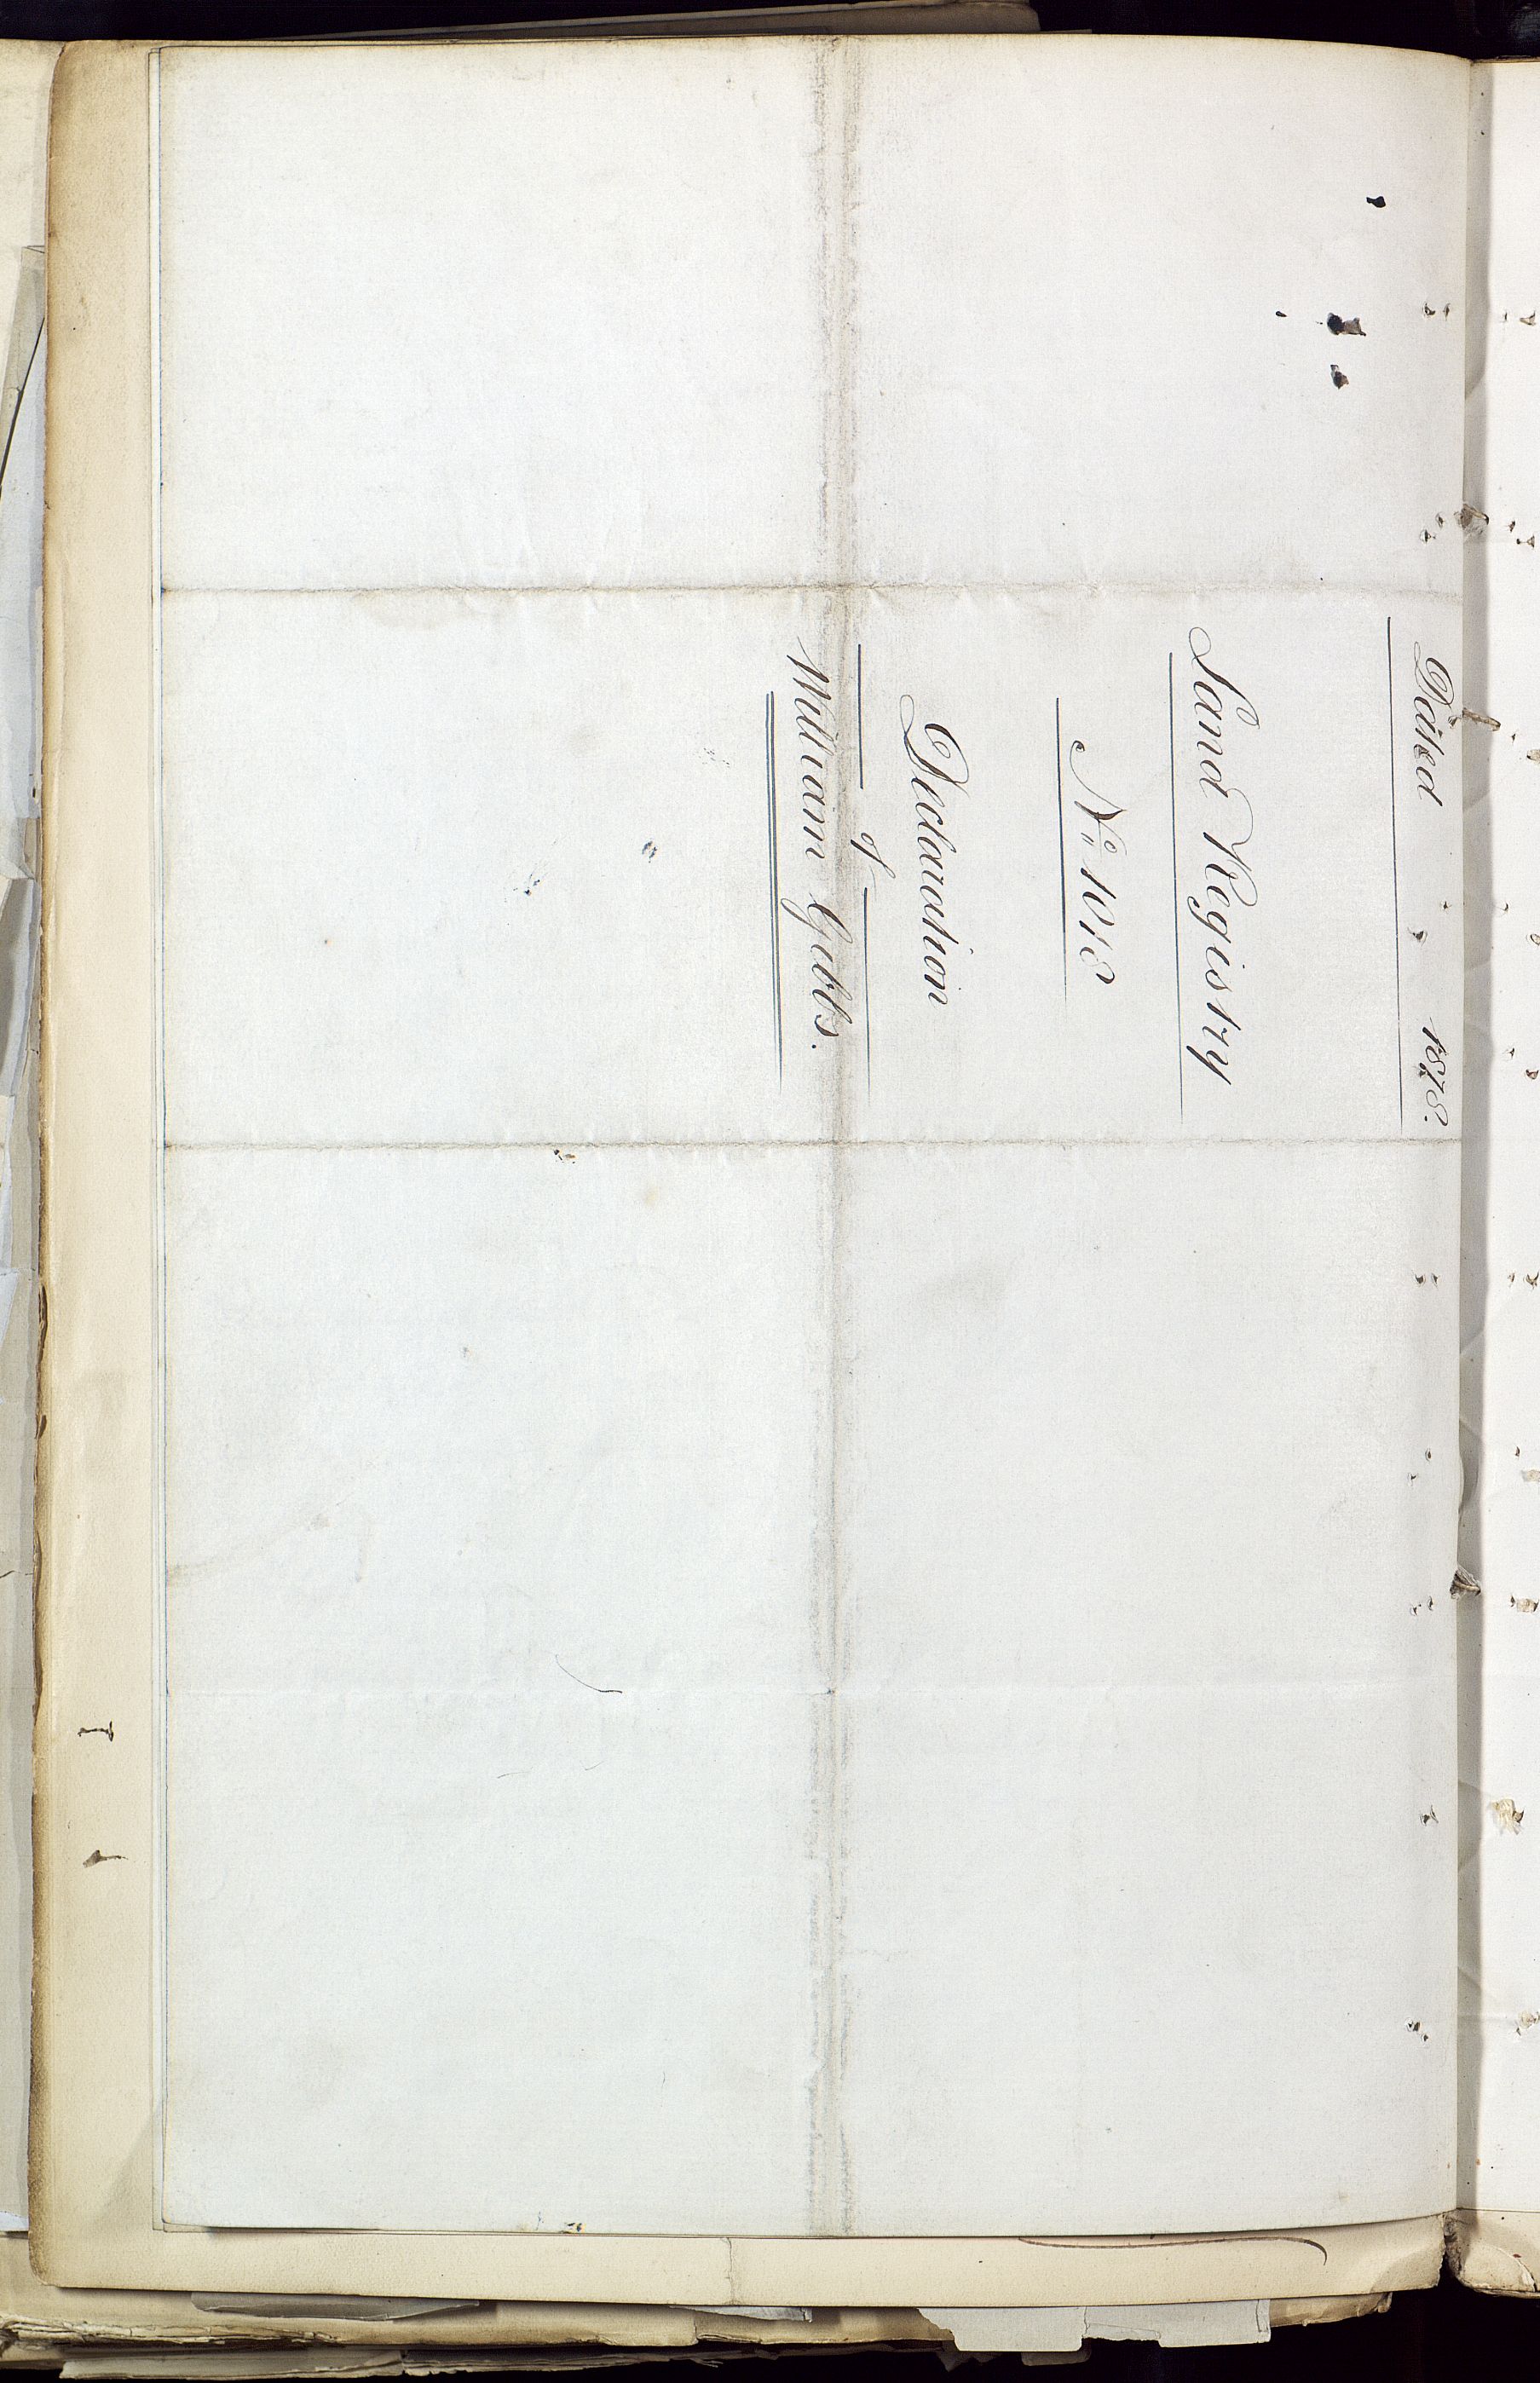 Dated 1878.
Land Registry
No. 1018
Declaration
of
William Gabbs.